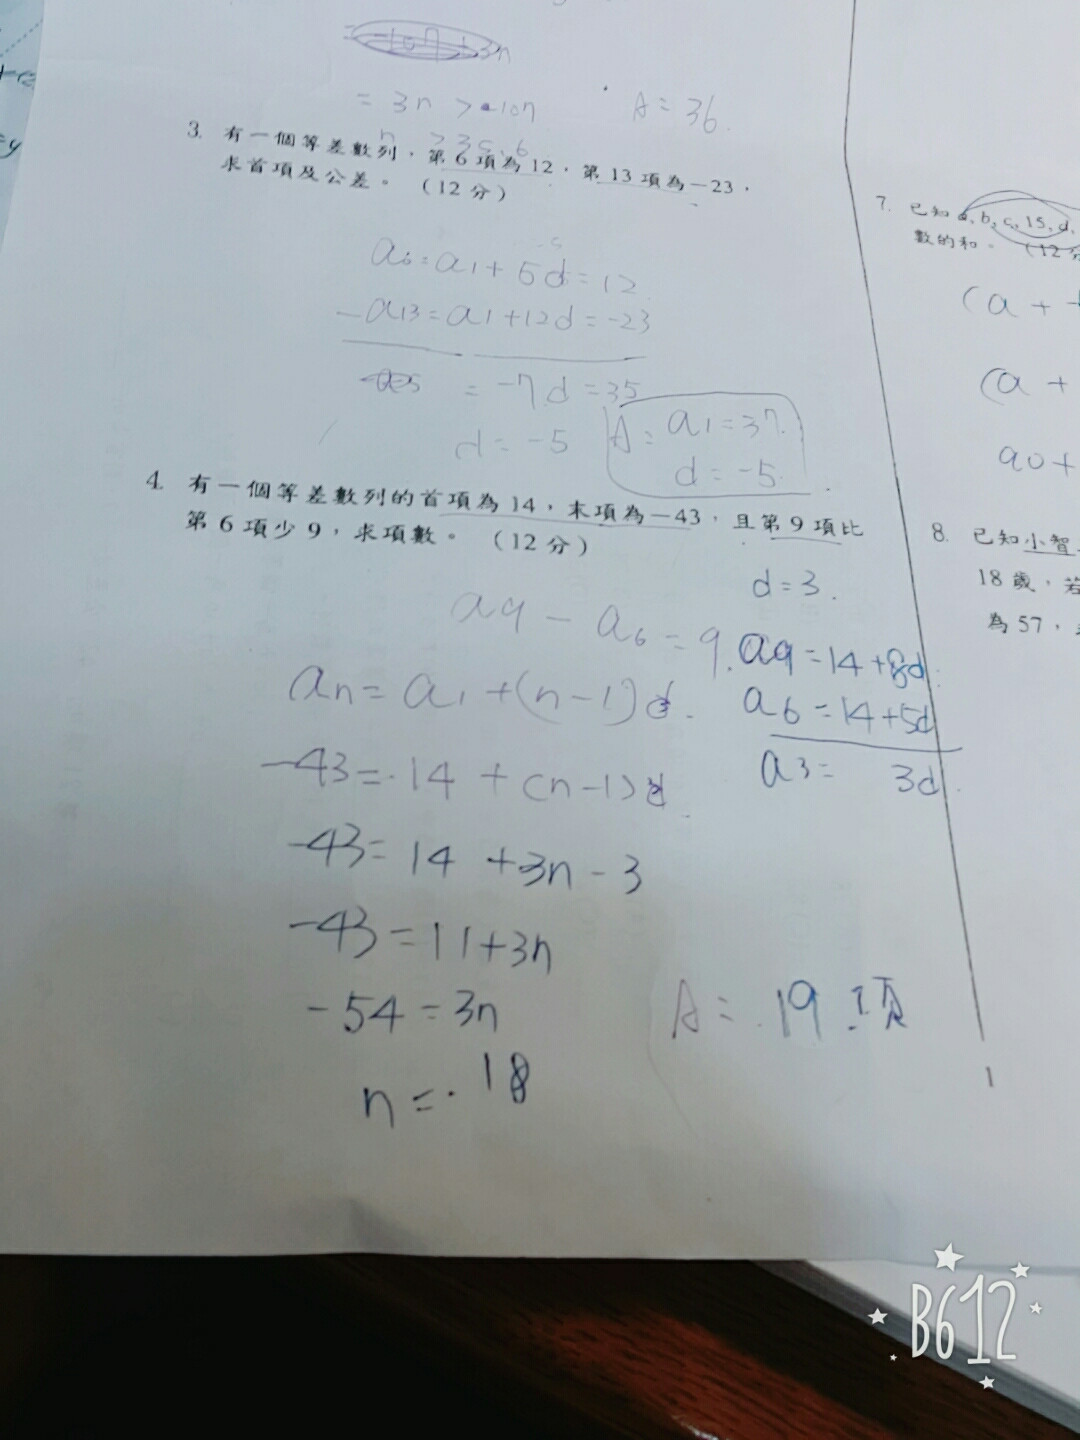 = 3n > -107
A = 36.
n > 35.6
3. 有一個等差數列，第 6 項為 12，第 13 項為 -23，
求首項及公差。 (12 分)
a6 = a1 + 5d = 12
- a13 = a1 + 12d = -23
= -7d = 35
d = -5
A = a1 = 37.
d = -5.
4. 有一個等差數列的首項為 14，末項為 -43，且第 9 項比
第 6 項少 9，求項數。 (12 分)
d = 3.
a9 - a6 = 9.
a9 = 14 + 8d
a6 = 14 + 5d
a3 = 3d
an = a1 + (n-1)d.
-43 = 14 + (n-1)d
-43 = 14 + 3n - 3
-43 = 11 + 3n
-54 = 3n
n = 18
A = 19 項
1
7. 已知 a, b, c, 15, d,
數的和。 (12 分
(a +
(a +
a0 +
8. 已知小智
18 歲，若
為 57，
B612